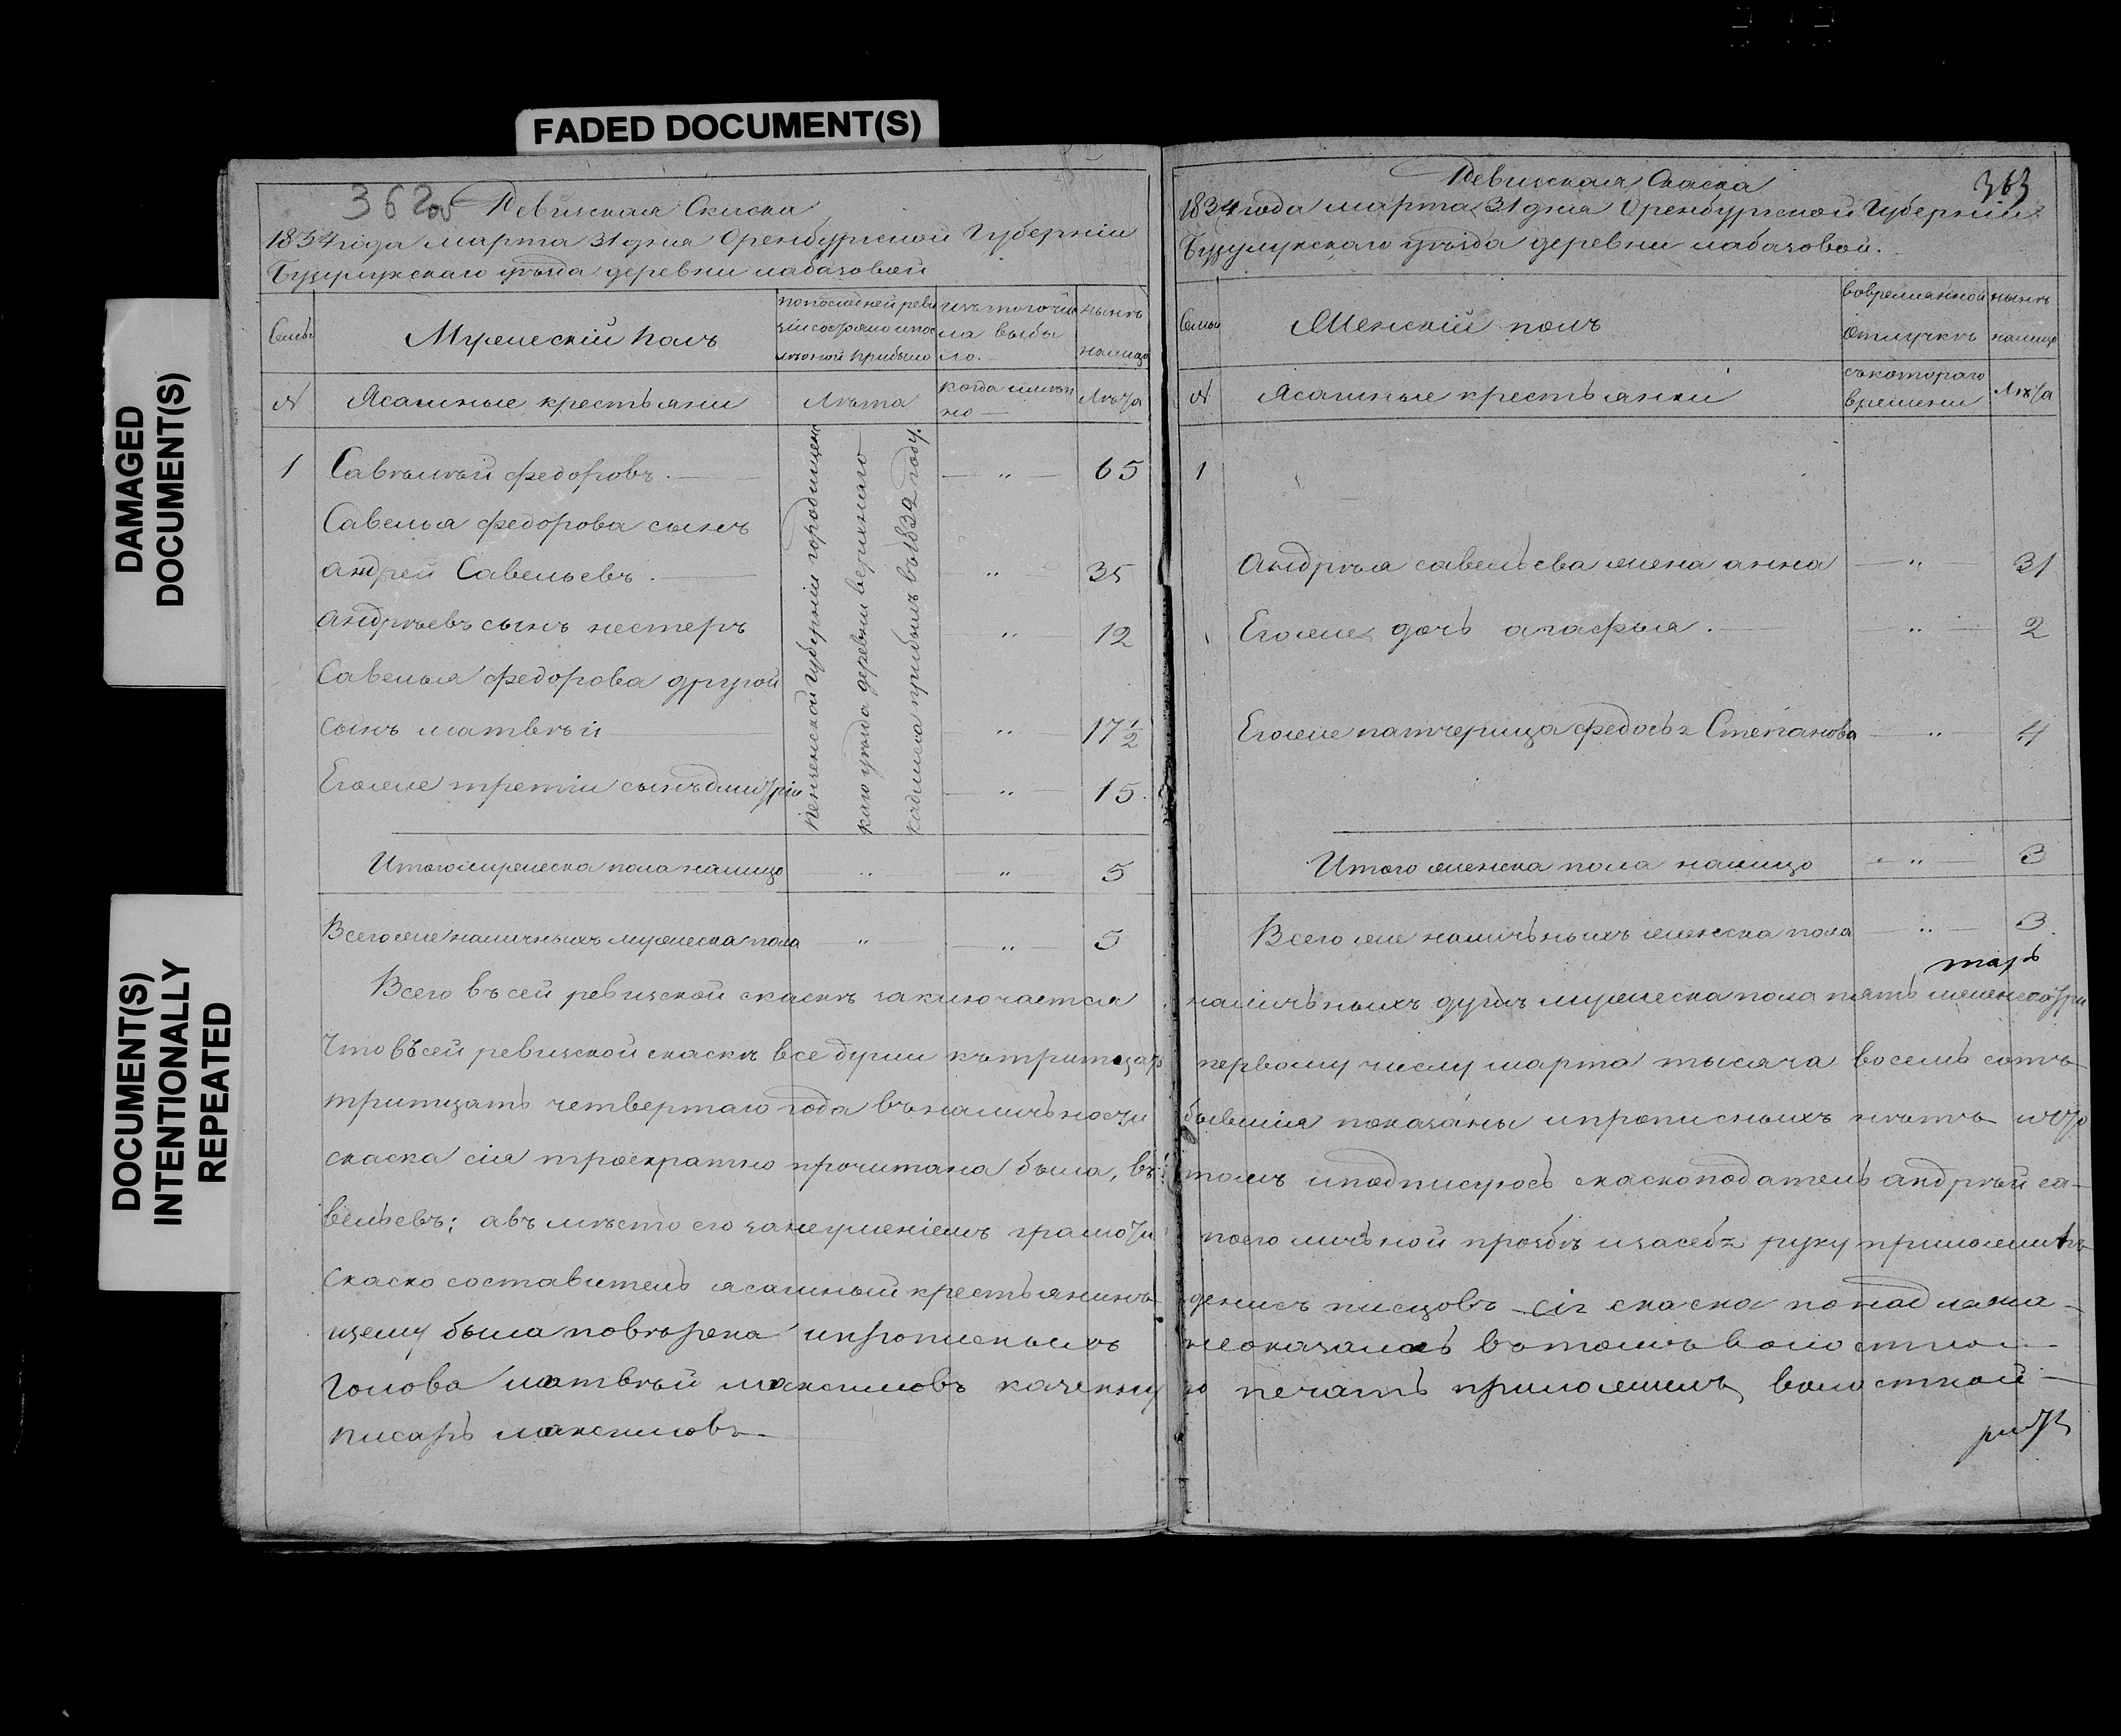 FADED DOCUMENT(S)
DAMAGED
DOCUMENT(S)
DOCUMENT(S)
INTENTIONALLY
REPEATED
362об Ревизская Скаска
1834 года марта 31 дня Оренбургской Губерніи
Бузулукскаго уѣзда деревни лабазовой
Семьи
Мужескій полъ
по последней реви
зіи состояло и пос
лѣ оной прибыло
изъ того чис
ла выбы
ло.
нынѣ
налицо
№
Ясашные крестьяни
Лѣта
когда имян
но
Лѣта
1 Савѣлѣй федоровъ. 65
Савелья федорова сынъ
андрей Савельевъ. 35
андрѣевъ сынъ нестеръ 12
Савелья федорова другой
сынъ матвѣй 17 1/2
Егоже третіи сынъ дмитріи 15.
пензенской губерніи городищенс
каго уѣзда деревни верхняго
кадмиса прибылъ въ 1832 году.
Итого мужеска пола налицо 5
Всегоже наличныхъ мужеска пола 5
Всего въ сей ревизской скаскѣ заключается
Что въ сей ревизской скаскѣ все души къ тритцать
тритцать четвертаго года въ наличьности
скаска сія троекратно прочитана была, въ
вельевъ; а въ мѣсто его за неумѣніемъ грамоти
скаско составитель ясашный крестьянинъ
щему была повѣрена и прописныхъ
Голова матвѣй максимовъ казенну
писарь максимовъ
Ревизская Скаска 363
1834 года марта 31 дня Оренбургской Губерніи
Бузулукскаго уѣзда деревни лабазовой.
Семьи
Женскій полъ
во времянной
отлучкѣ
нынѣ
налицо
№
Ясашные крестьянки
съ котораго
времени
Лѣта
1
Андрѣя савельева жена анна 31
Егоже дочь агафья. 2
Егоже патчерица федосья Степанова 4
Итого женска пола налицо 3
Всего же наличьныхъ женска пола 3.
наличьныхъ душъ мужеска пола пять женска три
первому числу марта тысяча восемь сотъ
бывшія показаны и прописныхъ нѣтъ и что
томъ и подписуюсь скаскоподатель андрѣй са-
по его личьной прозбѣ и за себя руку приложилъ
денисъ писцовъ сія скаска по надлежа-
не оказалось в томъ волостной
ю печать приложилъ волостной